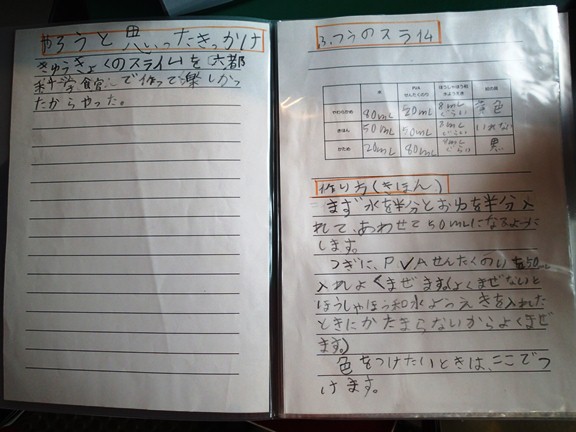 やろうと思いったきっかけ
きゅうきょくのスライムを六都
科学館で作って楽しかっ
たからやった。
ふつうのスライム
水
PVA
せんたくのり
ほうしゃほう和
すいようえき
絵の具
やわらかめ 80mL 20mL 8mLぐらい 黄色
きほん 50mL 50mL 8mLぐらい いれない
かため 20mL 80mL ぐらい 黒い
作り方(きほん)
まず水を半分とお
れて、あわせて50mLになるように
します。
つぎに、PVAせんたくのりを50mL
入れよくまぜます(よくまぜないと
ほうしゃほう和水ようえきを入れた
ときにかたまらないからよくまぜ
ます。)
色をつけたいときは、ここでつ
けます。